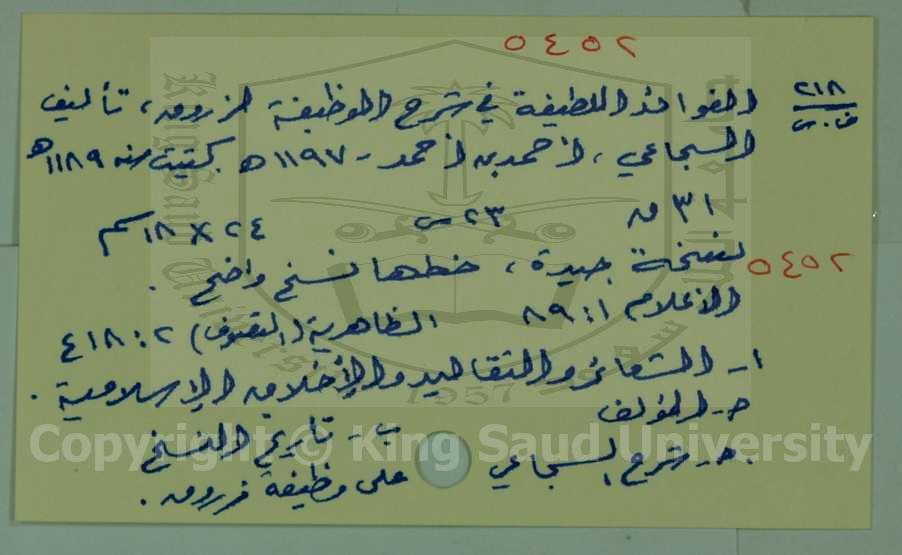 ٥٤٥٢
٢١٨
ف.س
الفوائد اللطيفة في شرح الوظيفة لزروق، تأليف
السجاعي، أحمد بن أحمد - ١١٩٧ هـ كتبت سنه ١١٨٩هـ
٣١ ق ٢٣ س ٢٤ × ١٨ سم
نسخة جيدة، خطها نسخ واضح. ٥٤٥٢
الأعلام ١: ٨٩ الظاهرية (التصوف) ٢: ٤١٨
١- الشعائر والتقاليد والأخلاق الإسلامية.
أ- المؤلف ب- تاريخ النسخ
ج- شرح السجاعي على وظيفة زروق.
King Saud University
1957
Copyright © King Saud University